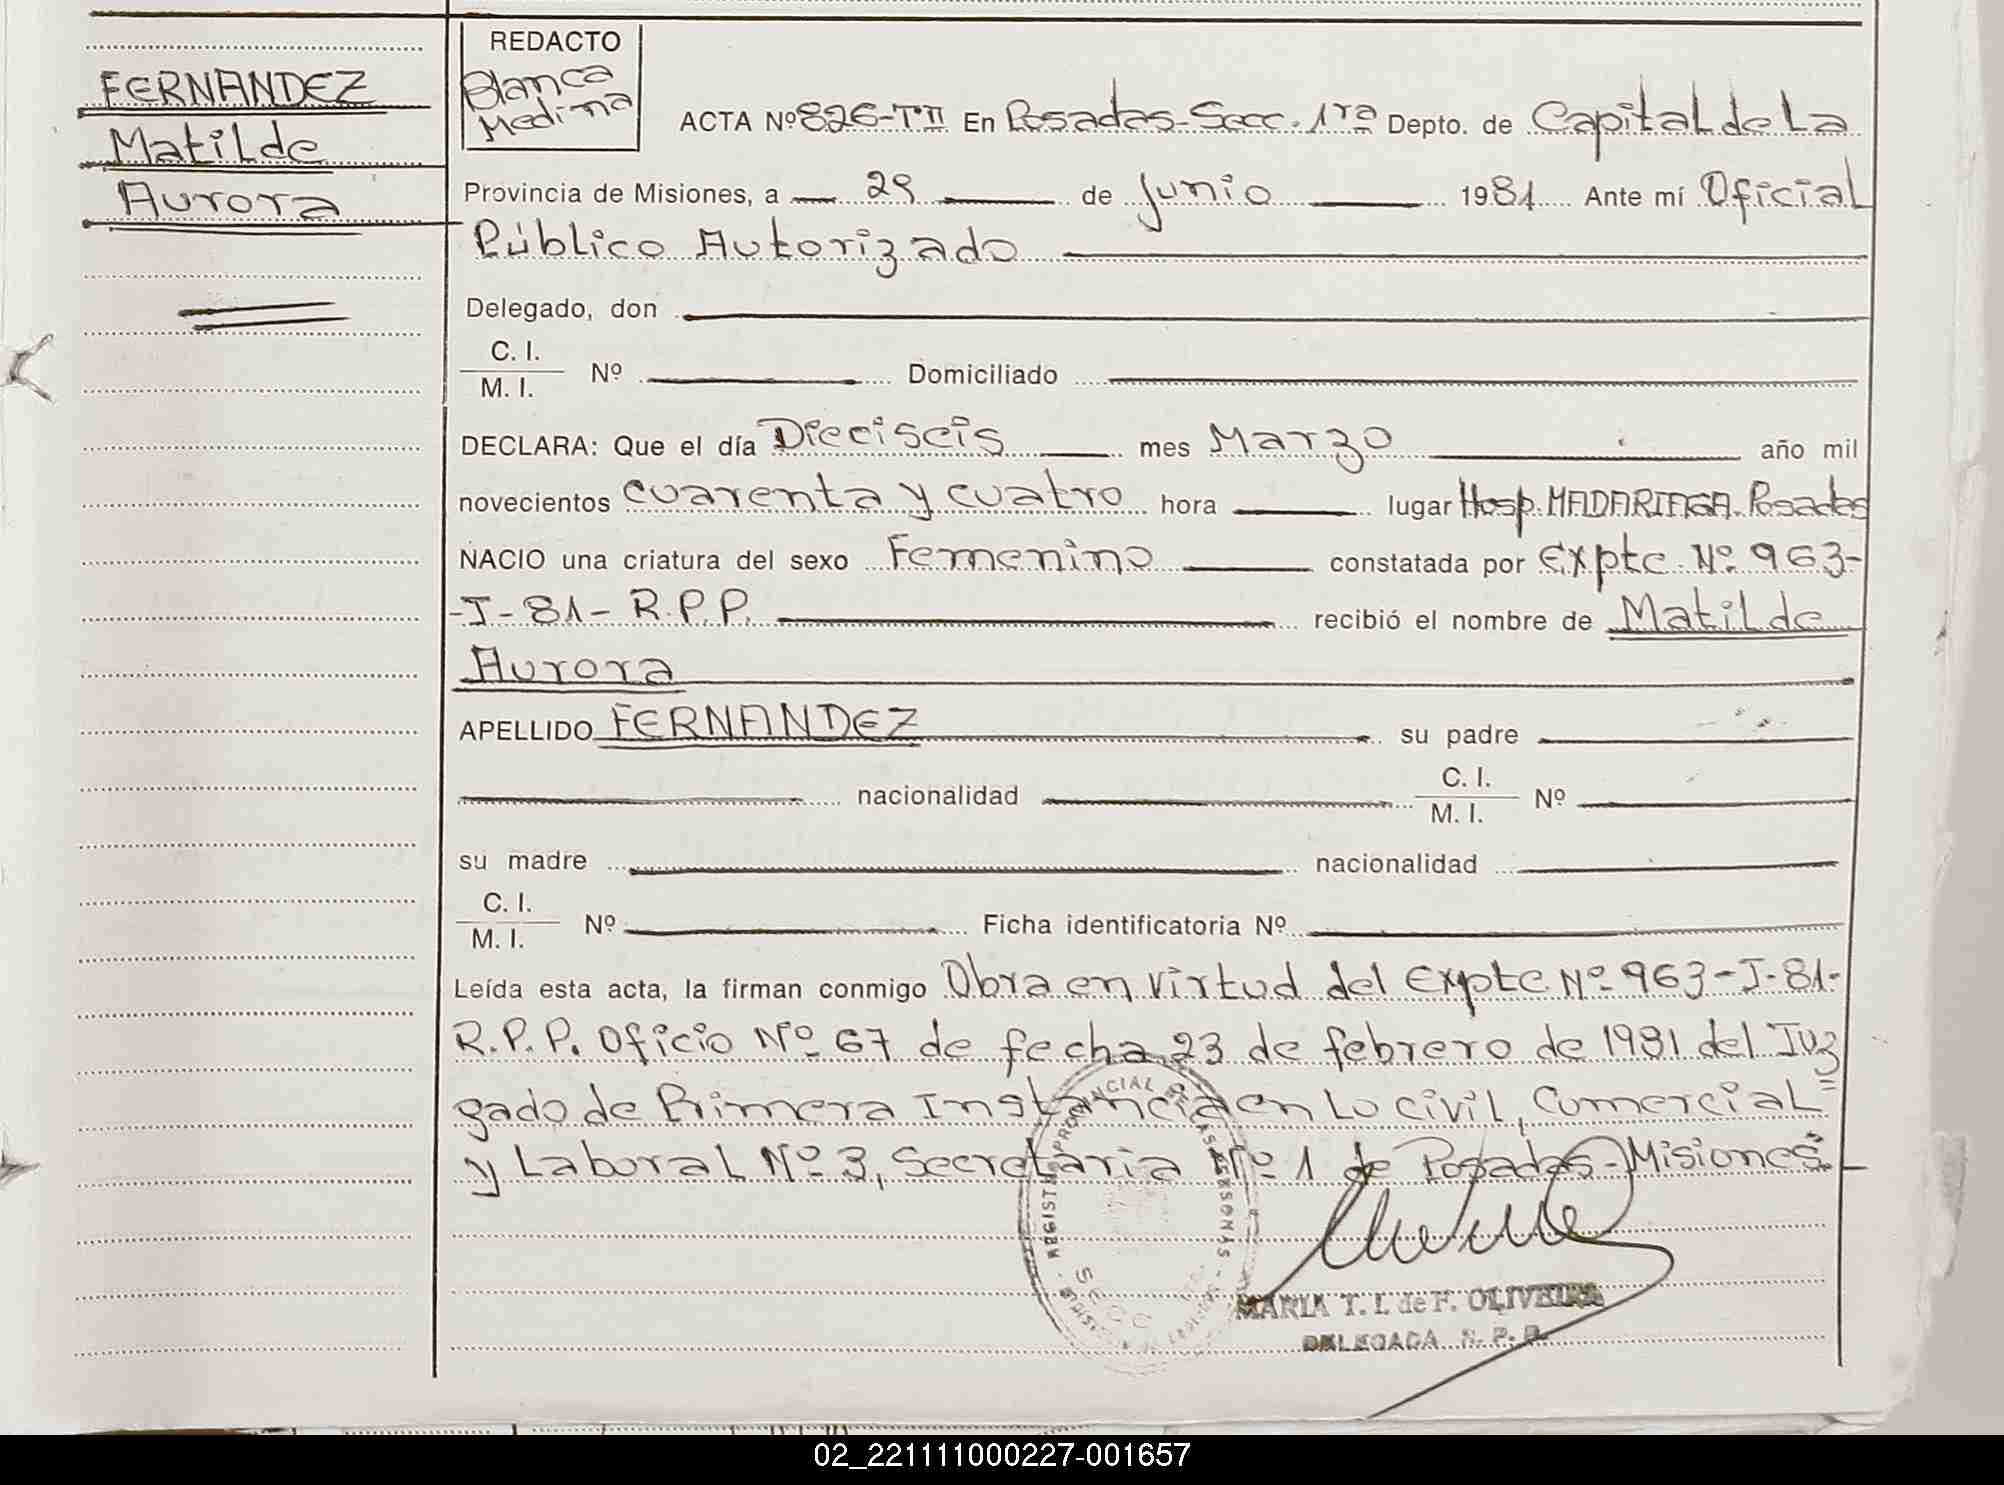 FERNANDEZ
Matilde
Aurora
REDACTO
Blanca
Medina
ACTA Nº 826-Tº II En Posadas-Secc. 1ra Depto. de Capital de La
Provincia de Misiones, a 29 de Junio 1981 Ante mí Oficial
Público Autorizado
Delegado, don
C. I.
M. I. Nº Domiciliado
DECLARA: Que el día Dieciseis mes Marzo año mil
novecientos cuarenta y cuatro hora lugar Hosp. MADARIAGA. Posadas
NACIO una criatura del sexo Femenino constatada por Expte. Nº 963-
-J-81-R.P.P. recibió el nombre de Matilde
Aurora
APELLIDO FERNANDEZ su padre
nacionalidad C. I.
M. I. Nº
su madre nacionalidad
C. I.
M. I. Nº Ficha identificatoria Nº
Leída esta acta, la firman conmigo Obra en virtud del Expte Nº 963-J-81-
R.P.P. Oficio Nº 67 de fecha 23 de febrero de 1981 del Juz
gado de Primera Instancia en Lo Civil, Comercial
y Laboral Nº 3, Secretaria Nº 1 de Posadas-Misiones.
REGISTRO PROVINCIAL DE LAS PERSONAS
MARIA T. I. de F. OLIVEIRA
DELEGADA R. P. P.
02_221111000227-001657